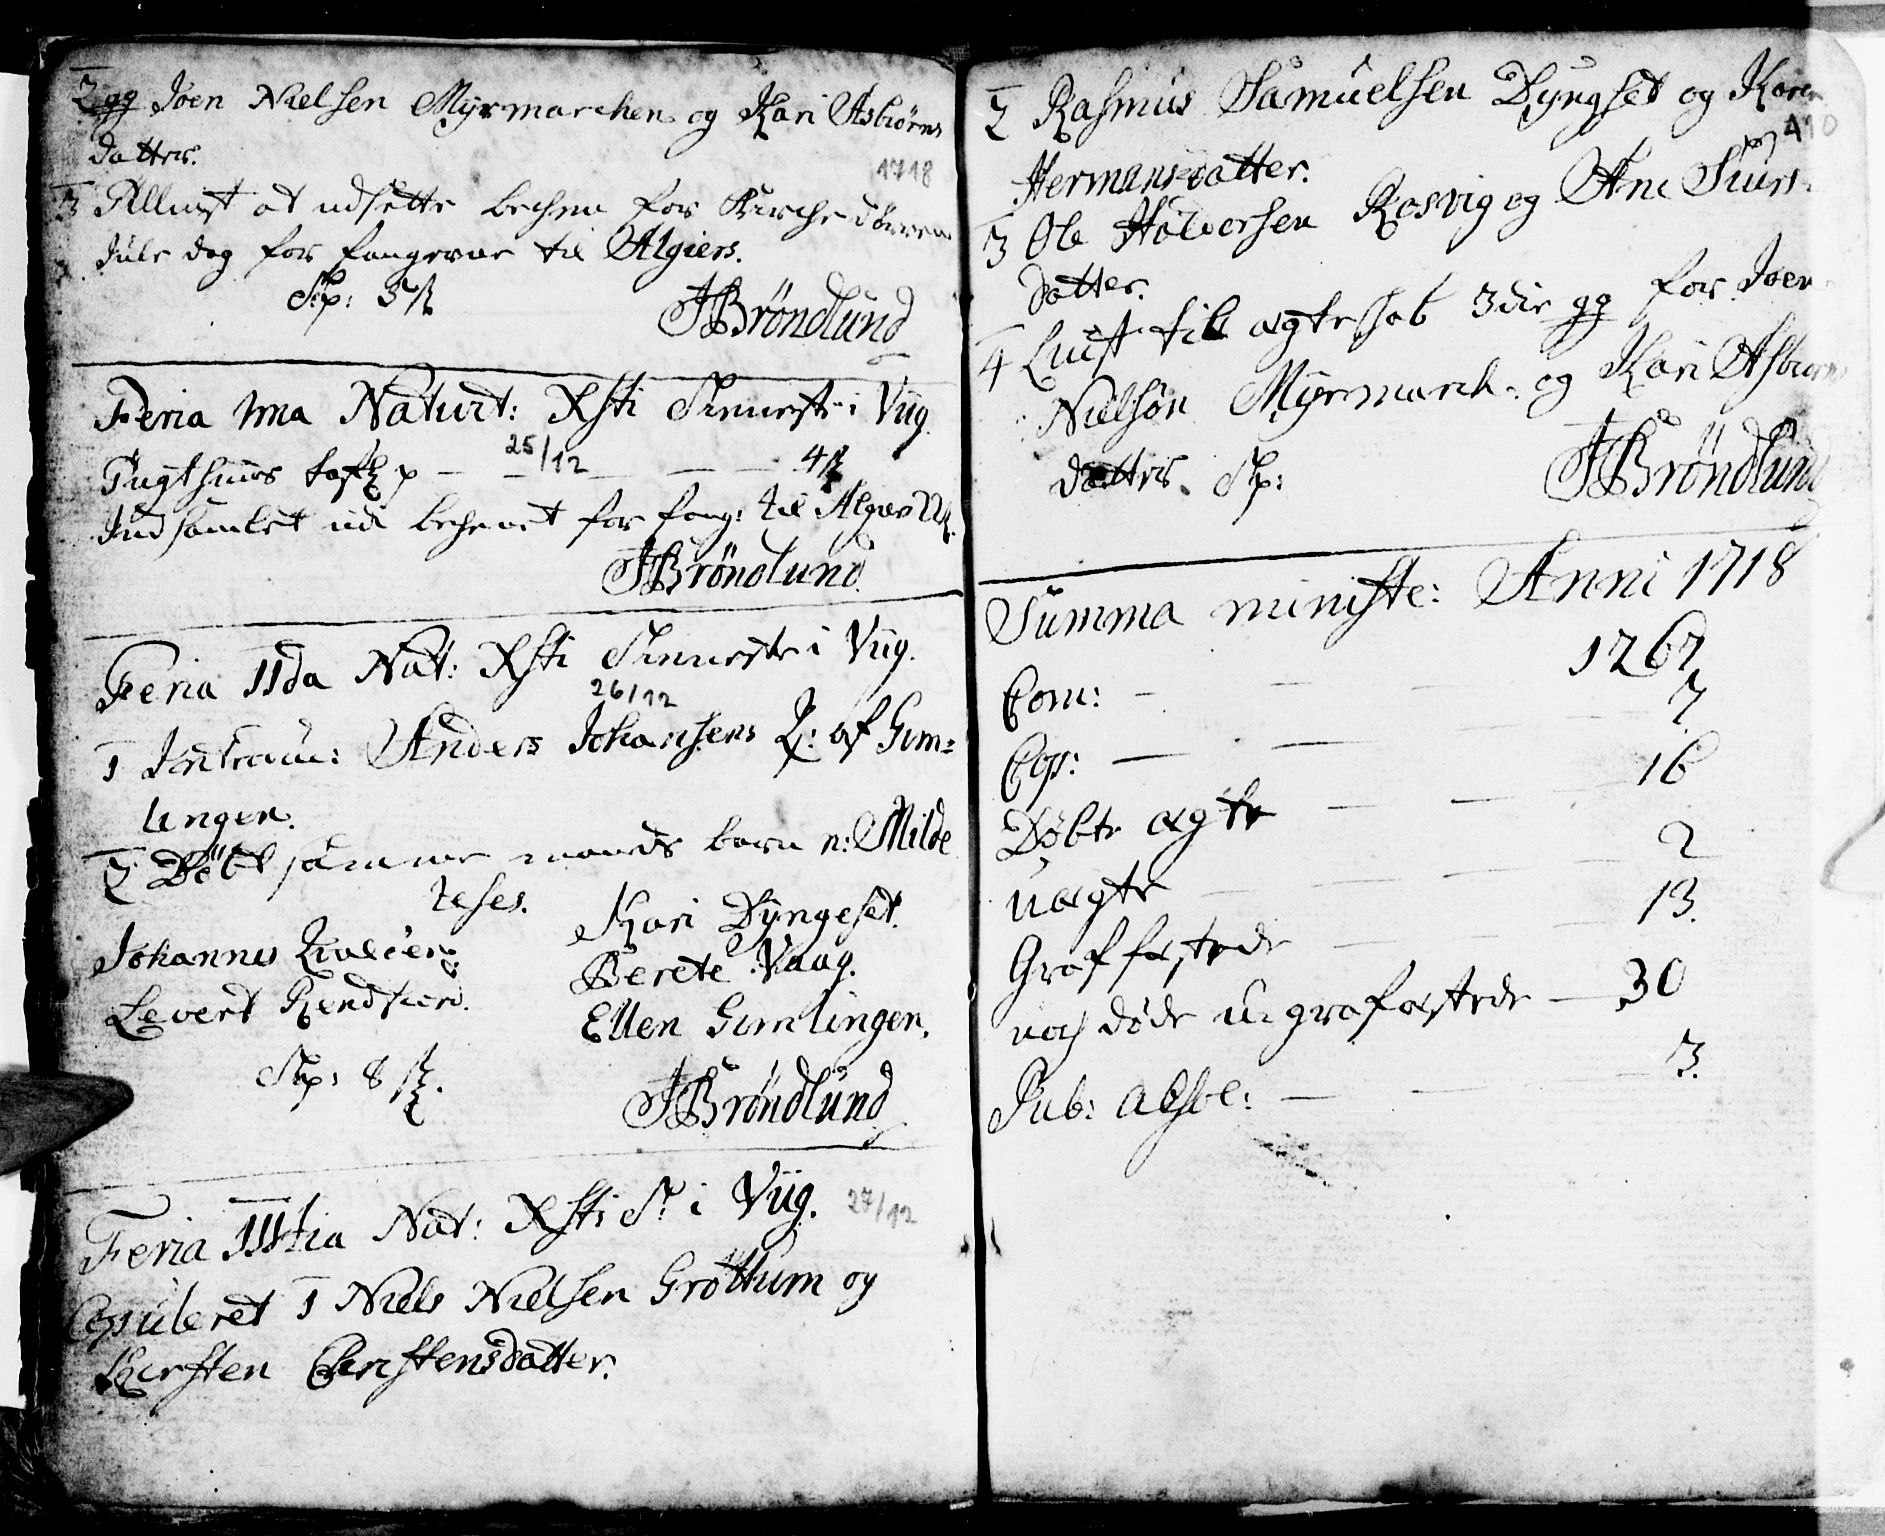 2 gg Joen Nielsen Myrmarchen og Kari Asbiörns
datter.
1718
3 at udsette bechen for Kirche dörren
Jule dag for fangerne til Algiers.
Skp: 3
JBröndlund
Feria 1ma Naturt: Xsti i Viig.
25/12
Tugthuus p — — — — 4
Indsamlet udi bechenet for fang: til Algiers
JBröndlund
Feria IIda Nat: Xsti i Viig.
26/12
1 Introdu: Anders Johansens K: af Gim=
lingen.
2 Döbt samme mands barn n: Milde
teses.
Johannes
Kari Dyngeset.
Berete Vaag.
Levert
Ellen Gimlingen.
Skp: 8
JBröndlund
Feria IIItia Nat: Xsti i Viig.
27/12
Copuleret 1 Niels Nielsen Gröttum og
Kirsten Christensdatter.
2 Rasmus Samuelsen Dyngset og Karen
Hermansdatter.
3 Ole Halversen Rosvig og Ane Siurs-
datter.
4 Liust til ægteskab 3die gg for Joen
Nielsön Myrmarch: og Kari Asbiörns
datter. Skp:
JBröndlund
Summa ministe: Anni 1718
Com: — — — 1267
Cop: — — — 7
Döbte ægte — — — 16
uægte — — — 2
Graf festede — — — 13.
noch döde u-grafestede — 30
Pub: absol: — — — 3.